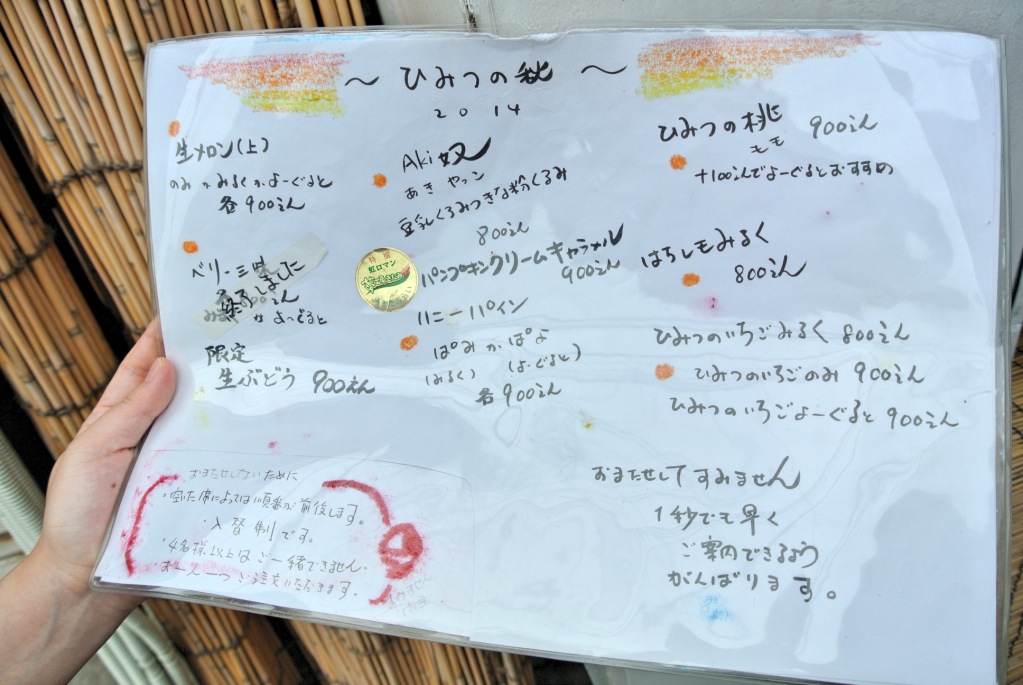 〜 ひみつの秋 〜
2014
生メロン(上)
のみ か みるく か よーぐると
各900えん
ベリー三
終了しました
えん
か よーぐると
限定
生ぶどう 900えん
Aki奴
あき やっこ
豆乳くるみつきな粉くるみ
800えん
特撰
虹ロマン
パンプキンクリームキャラメル
900えん
ハニーパイン
ぱみ か ぱよ
(みるく) (よーぐると)
各900えん
ひみつの桃 900えん
もも
+100えんでよーぐるとおすすめ
はちしもみるく
800えん
ひみつのいちごみるく 800えん
ひみつのいちごのみ 900えん
ひみつのいちごよーぐると 900えん
おまたせしないために
・空いた席によっては順番が前後します。
・入替制です。
・4名様以上はご一緒できません。
・お一人一つご注文いただきます。
おまたせしてすみません
1秒でも早く
ご案内できるよう
がんばります。